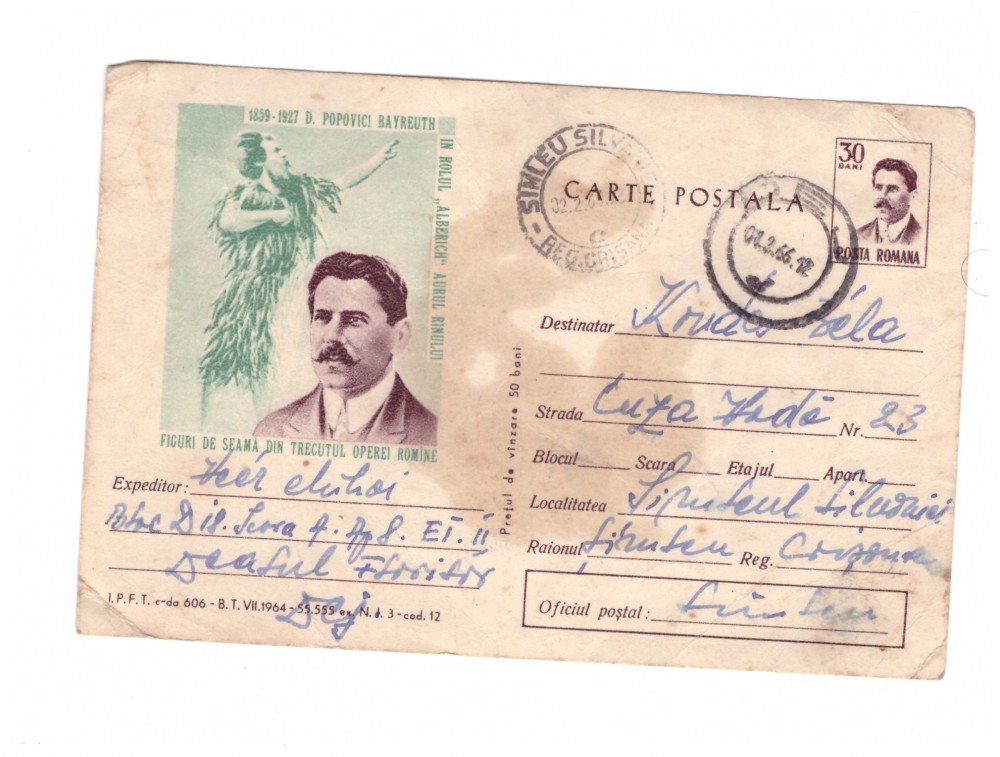 1859-1927 D. POPOVICI BAYREUTH
IN ROLUL „ALBERICH” AURUL RINULUI
FIGURI DE SEAMA DIN TRECUTUL OPEREI ROMÎNE
Expeditor: Heer Mihai
Bloc D 18. Scora 4. Ap 8. ET. II
Dealul Florilor
Dej
I.P.F.T. c-da 606 - B.T. VII.1964 - 55.555 ex. N. i. 3 - cod. 12
Prețul de vînzare 50 bani
SIMLEU SILVANIEI
02.2.6
REG. CRISANA
CARTE POSTALA
.2.66.12
30
BANI
POSTA ROMANA
Destinatar Kovács Béla
Strada Cuza Vodă Nr. 23
Blocul Scara Etajul Apart.
Localitatea Șimleul Silvaniei
Raionul Șimleu Reg. Crișana
Oficiul poștal: Șimleu